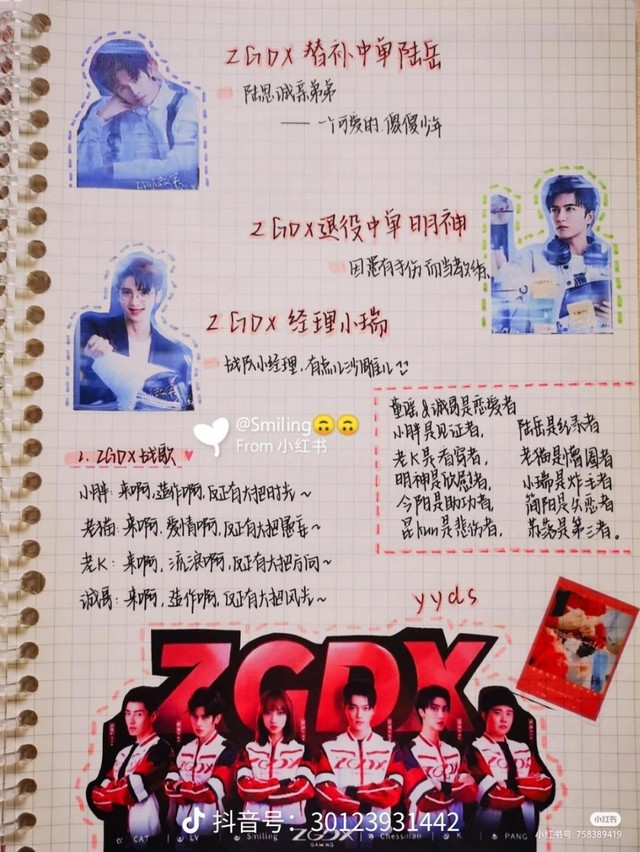 ZGDX 替补中单陆岳
陆思诚亲弟弟
—— 一个可爱的傻傻少年
ZGDX退役中单明神
因患有手伤而当教练
ZGDX 经理小瑞
战队小经理,有点儿沙雕儿
@Smiling🙃🙃
From 小红书
童谣&诚哥是恋爱者
小胖是见证者, 陆岳是纪录者
老K是看穿者, 老猫是
明神是欣慰者, 小瑞是炸毛者
今阳是助功者, 简阳是失恋者
是悲伤者, 苏落是第三者。
2. ZGDX战歌
小胖: 来啊,造作啊,反正有大把时光~
老猫: 来啊,爱情啊,反正有大把愚妄~
老K: 来啊,流浪啊,反正有大把方向~
诚哥: 来啊,造作啊,反正有大把风光~
yyds
ZGDX
CAT LV Smiling ZGDX GAMING Chessman K PANG
抖音号: 30123931442
小红书
小红书号: 758389419